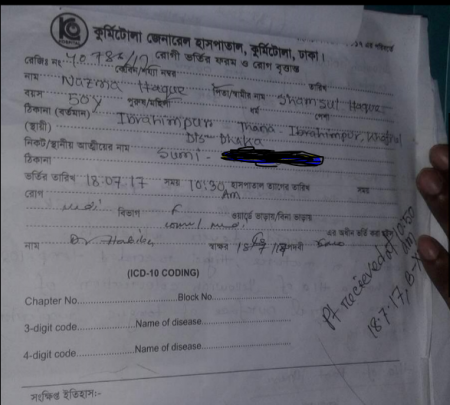 কুর্মিটোলা জেনারেল হাসপাতাল, কুর্মিটোলা, ঢাকা।
রোগী ভর্তির ফরম ও রোগ বৃত্তান্ত
রেজিঃ নং
কেবিন/শয্যা নম্বর তারিখ
নাম Nazma Haque পিতা/স্বামীর নাম Shamsul Haque
বয়স 50y পুরুষ/মহিলা ধর্ম পেশা
ঠিকানা (বর্তমান) Ibrahimpur Thana- Ibrahimpur, Kafrul
(স্থায়ী) Dis- Dhaka
নিকট/স্থানীয় আত্মীয়ের নাম Sumi -
ঠিকানা
ভর্তির তারিখ 18.07.17 সময় 10:30 Am হাসপাতাল ত্যাগের তারিখ সময়
রোগ
বিভাগ F ওয়ার্ডে ভাড়ায়/বিনা ভাড়ায়
এর অধীন ভর্তি করা
নাম Dr স্বাক্ষর পদবী
(ICD-10 CODING)
Chapter No. Block No.
3-digit code Name of disease
4-digit code Name of disease
সংক্ষিপ্ত ইতিহাস:-
Pt recieved at 10:30 Am
18.7.17,